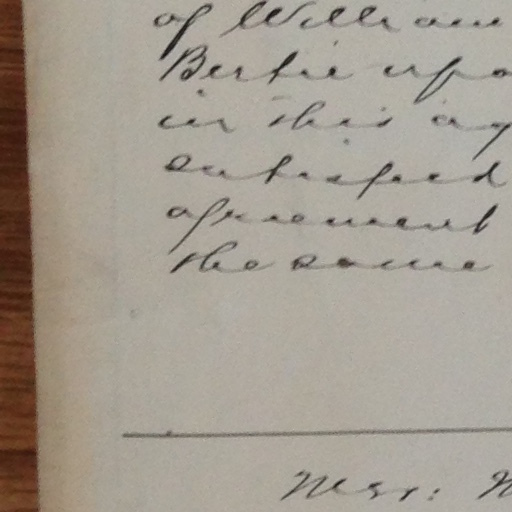 of William
Bertie upo
in this ag
satisfied
agreement
the same
Mer: N